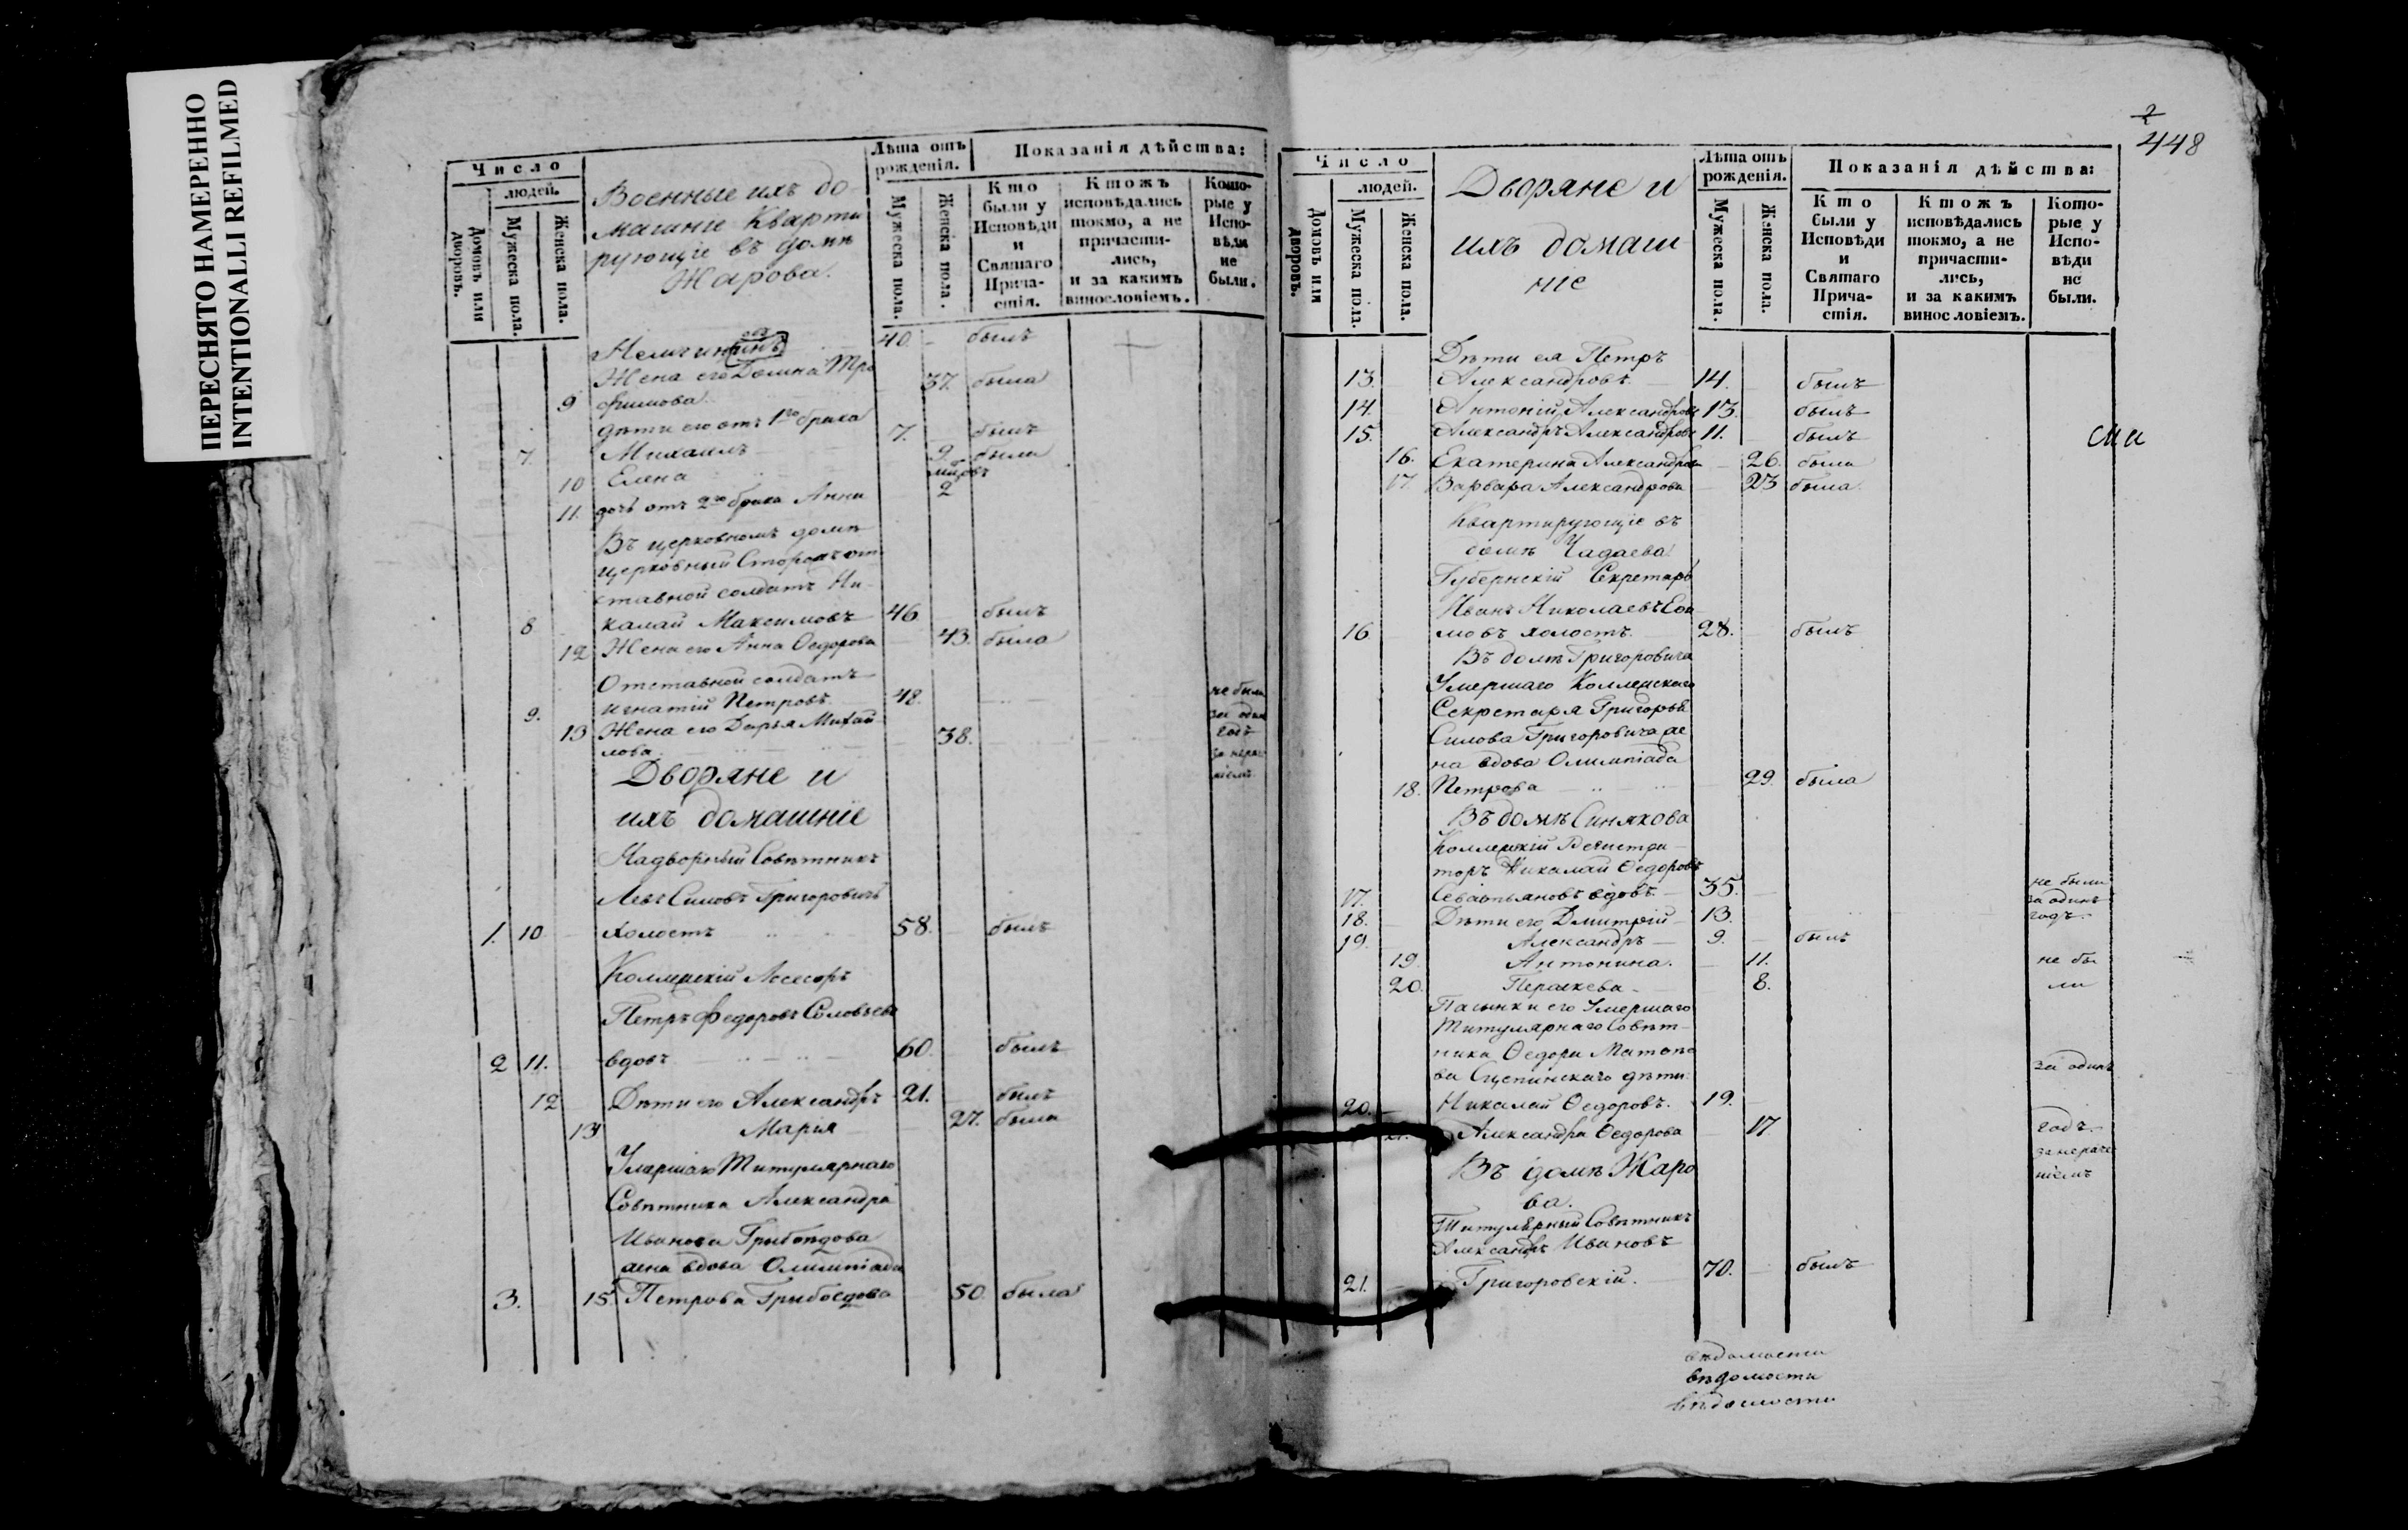 ПЕРЕСНЯТО НАМЕРЕННО
INTENTIONALLI REFILMED
Число
людей.
Домовъ или дворовъ.
Мужеска пола.
Женска пола.
Военные ихъ до-
машніе Кварти
рующіе въ домѣ
Жарова.
Лѣта отъ рожденія.
Мужеска пола.
Женска пола.
Показанія дѣйства:
Кто были у Исповѣди и Святаго Прича-стія.
Ктожъ исповѣдались токмо, а не причасти-лись, и за какимъ винословіемъ.
Кото-рые у Испо-вѣди не были.
40. былъ
Жена его Домна Тро
37. была
9 фимова.
дѣти его отъ 1го брака
7. Михаилъ 7. былъ
10 Елена 9. была
11. дочь отъ 2го брака Анна 2
Въ церковномъ домѣ
церковный Сторожъ от
ставной солдатъ Ни-
8 колай Максимовъ 46 былъ
12 Жена его Анна Ѳедорова 43. была
Отставной солдатъ
9. Игнатій Петровъ. 48. не были
13 Жена его Дарья Михай за одинъ
лова. 38. годъ
Дворяне и
ихъ домашніе
Надворный Совѣтникъ
Левъ Симовъ Григоровичъ
1. 10 холостъ 58. былъ
Коллежскій Ассесоръ
Петръ Федоровъ Соловьевъ
2 11. вдовъ 60. былъ
12 Дѣти его Александръ 21. былъ
13 Марья 27. была
Умершаго Титулярнаго
Совѣтника Александра
Иванова Грибоѣдова
жена вдова Олимпіада
3. 15. Петрова Грибоедова 50. была
2
448
Число
людей.
Домовъ или дворовъ.
Мужеска пола.
Женска пола.
Дворяне и
ихъ домаш
ніе
Лѣта отъ рожденія.
Мужеска пола.
Женска пола.
Показанія дѣйства:
Кто были у Исповѣди и Святаго Прича-стія.
Ктожъ исповѣдались токмо, а не причасти-лись, и за какимъ винословіемъ.
Кото-рые у Испо-вѣди не были.
Дѣти ея Петръ
13. Александровъ. 14. былъ
14. Антоній Александровъ 13. былъ
15. Александръ Александровъ 11. былъ
16. Екатерина Александрова 26. была
17. Варвара Александрова 23 была
Квартирующіе въ
домѣ Чадаева
Губернскій Секретарь
Иванъ Николаевъ Ефи
16 мовъ холостъ. 28. былъ
Въ домѣ Григоровича
Умершаго Коллежскаго
Секретаря Григорья
Симова Григоровича же
на вдова Олимпіада
18. Петрова 29. была
Въ домѣ Синякова
Коллежскій Регистра-
торъ Николай Ѳедоровъ
17. Севастьяновъ вдовъ. 35. не были
18. Дѣти его Дмитрій 13. за одинъ годъ.
19. Александръ 9. былъ
19 Антонина. 11. не бы
20. Параскева 8. ли
Пасынки его Умершаго
Титулярнаго Совѣт-
ника Ѳедора Матвѣе
ва дѣти: за одинъ
20. Николай Ѳедоровъ. 19.
21. Александра Ѳедорова 17 годъ.
за нераче
ніемъ
Въ домѣ Жаро
ва.
Титулярный Совѣтникъ
Александръ Ивановъ
21. Григоровскій. 70. былъ
вѣдомости
вѣдомости
вѣдомости